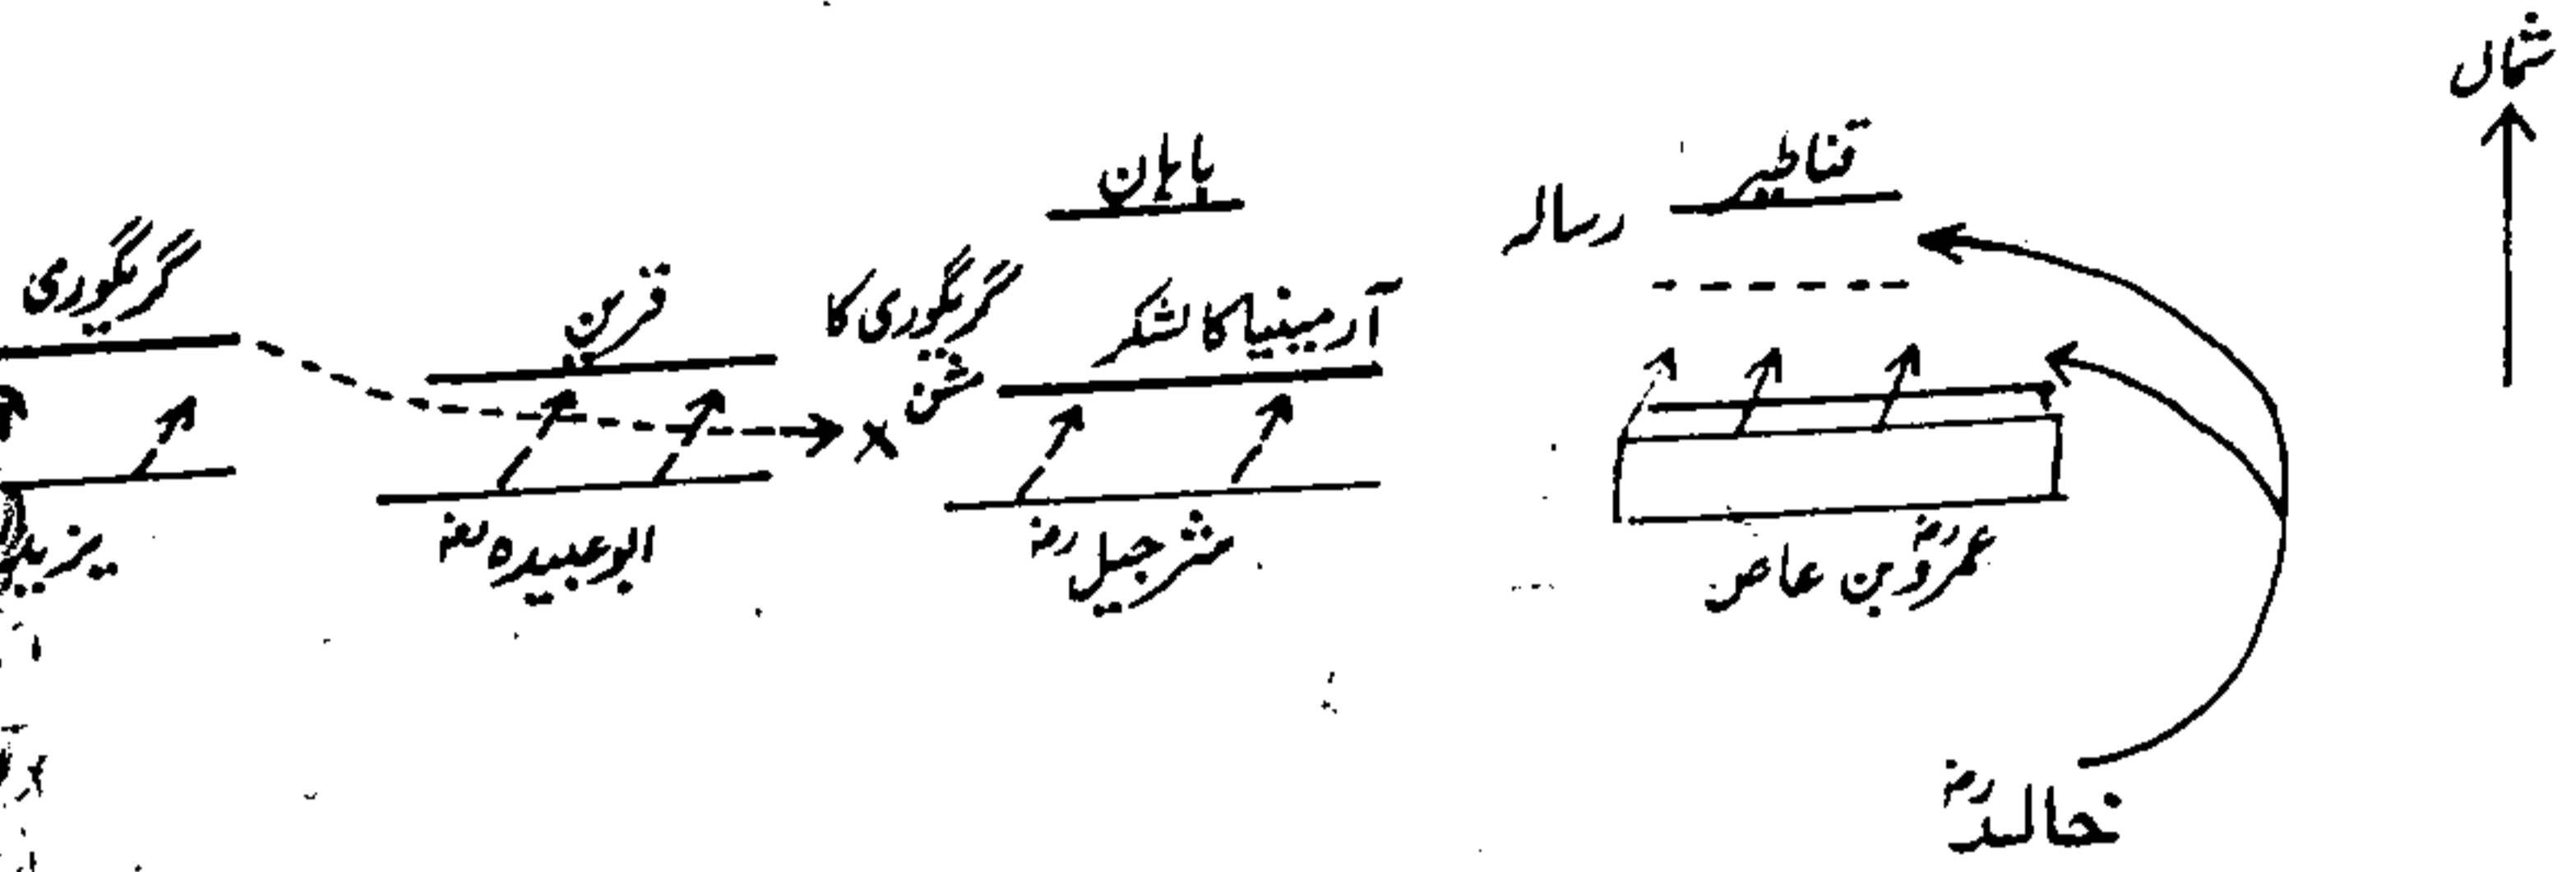 شمال
قناطیر
رسالہ
باہان
آرمینیا کا لشکر
گریگوری کا
مشن
قرین
گریگوری
عمروؓ بن عاص
شرجیل رضہ
ابوعبیدہ رضہ
یزید
خالد رضہ